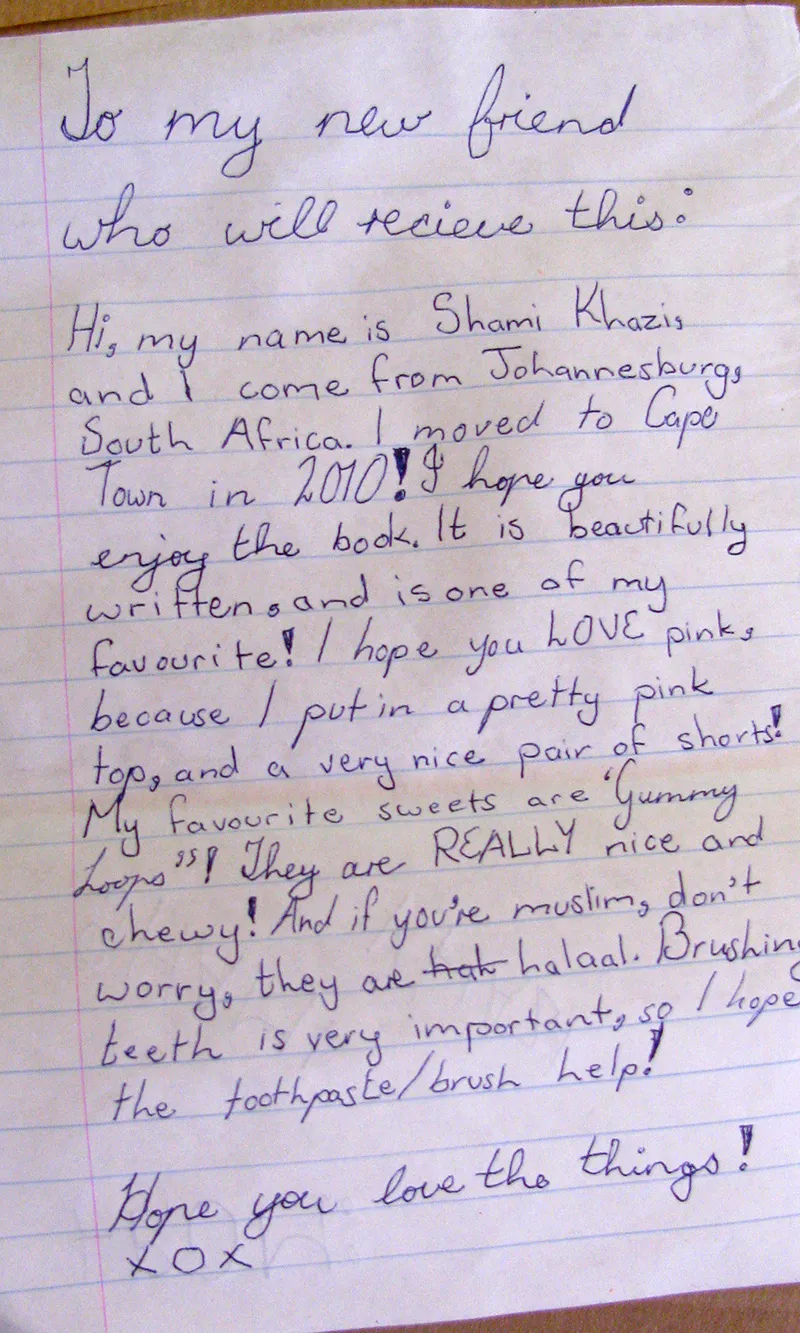 To my new friend
who will recieve this:
Hi, my name is Shami Khazi,
and I come from Johannesburg,
South Africa. I moved to Cape
Town in 2010! I hope you
enjoy the book. It is beautifully
written, and is one of my
favourite! I hope you LOVE pink,
because I put in a pretty pink
top, and a very nice pair of shorts!
My favourite sweets are "Gummy
Loops"! They are REALLY nice and
chewy! And if you're muslim, don't
worry, they are halaal. Brushing
teeth is very important, so I hope
the toothpaste/brush help!
Hope you love the things!
xox